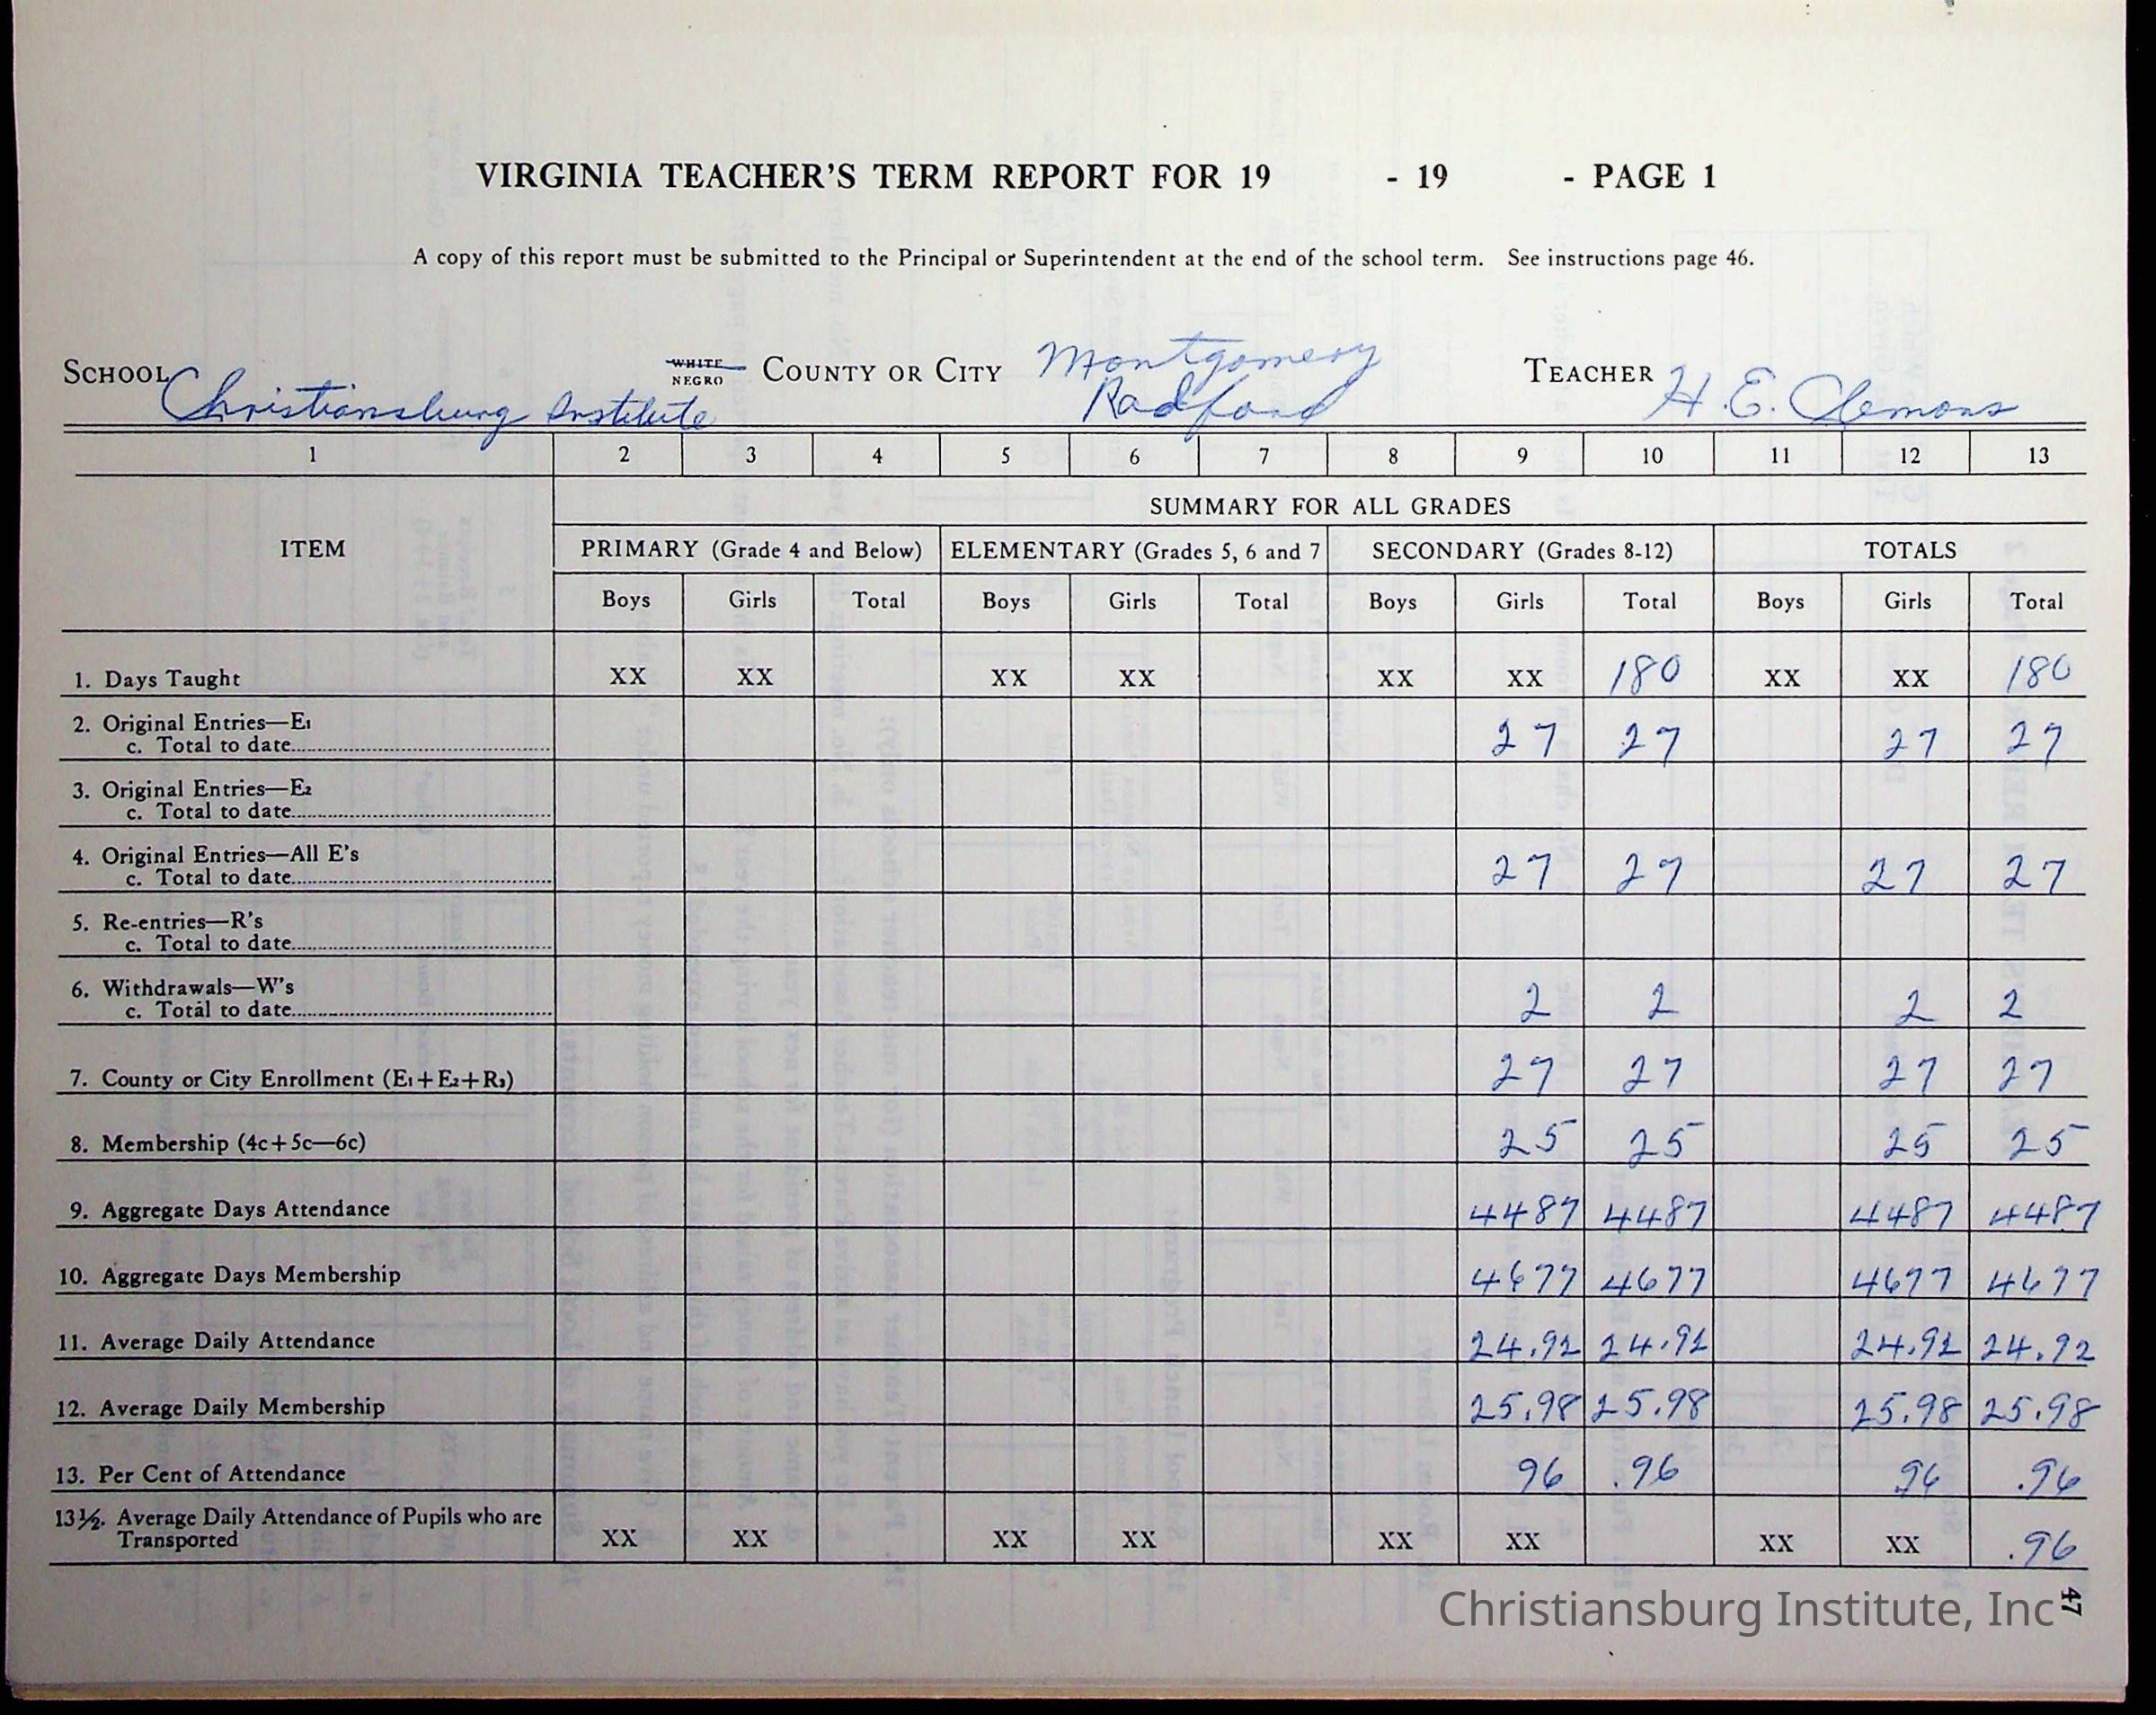 VIRGINIA TEACHER'S TERM REPORT FOR 19 - 19 - PAGE 1
A copy of this report must be submitted to the Principal or Superintendent at the end of the school term. See instructions page 46.
SCHOOL Christiansburg Institute WHITE NEGRO COUNTY OR CITY Montgomery Radford TEACHER H. E. Clemons
1 2 3 4 5 6 7 8 9 10 11 12 13
SUMMARY FOR ALL GRADES
ITEM PRIMARY (Grade 4 and Below) ELEMENTARY (Grades 5, 6 and 7 SECONDARY (Grades 8-12) TOTALS
Boys Girls Total Boys Girls Total Boys Girls Total Boys Girls Total
1. Days Taught XX XX XX XX XX XX 180 XX XX 180
2. Original Entries—E1
c. Total to date 27 27 27 27
3. Original Entries—E2
c. Total to date
4. Original Entries—All E's
c. Total to date 27 27 27 27
5. Re-entries—R's
c. Total to date
6. Withdrawals—W's
c. Total to date 2 2 2 2
7. County or City Enrollment (E1+E2+R3) 27 27 27 27
8. Membership (4c+5c—6c) 25 25 25 25
9. Aggregate Days Attendance 4487 4487 4487 4487
10. Aggregate Days Membership 4677 4677 4677 4677
11. Average Daily Attendance 24.92 24.92 24.92 24.92
12. Average Daily Membership 25.98 25.98 25.98 25.98
13. Per Cent of Attendance 96 .96 .96 .96
13½. Average Daily Attendance of Pupils who are
Transported XX XX XX XX XX XX XX XX .96
47
Christiansburg Institute, Inc